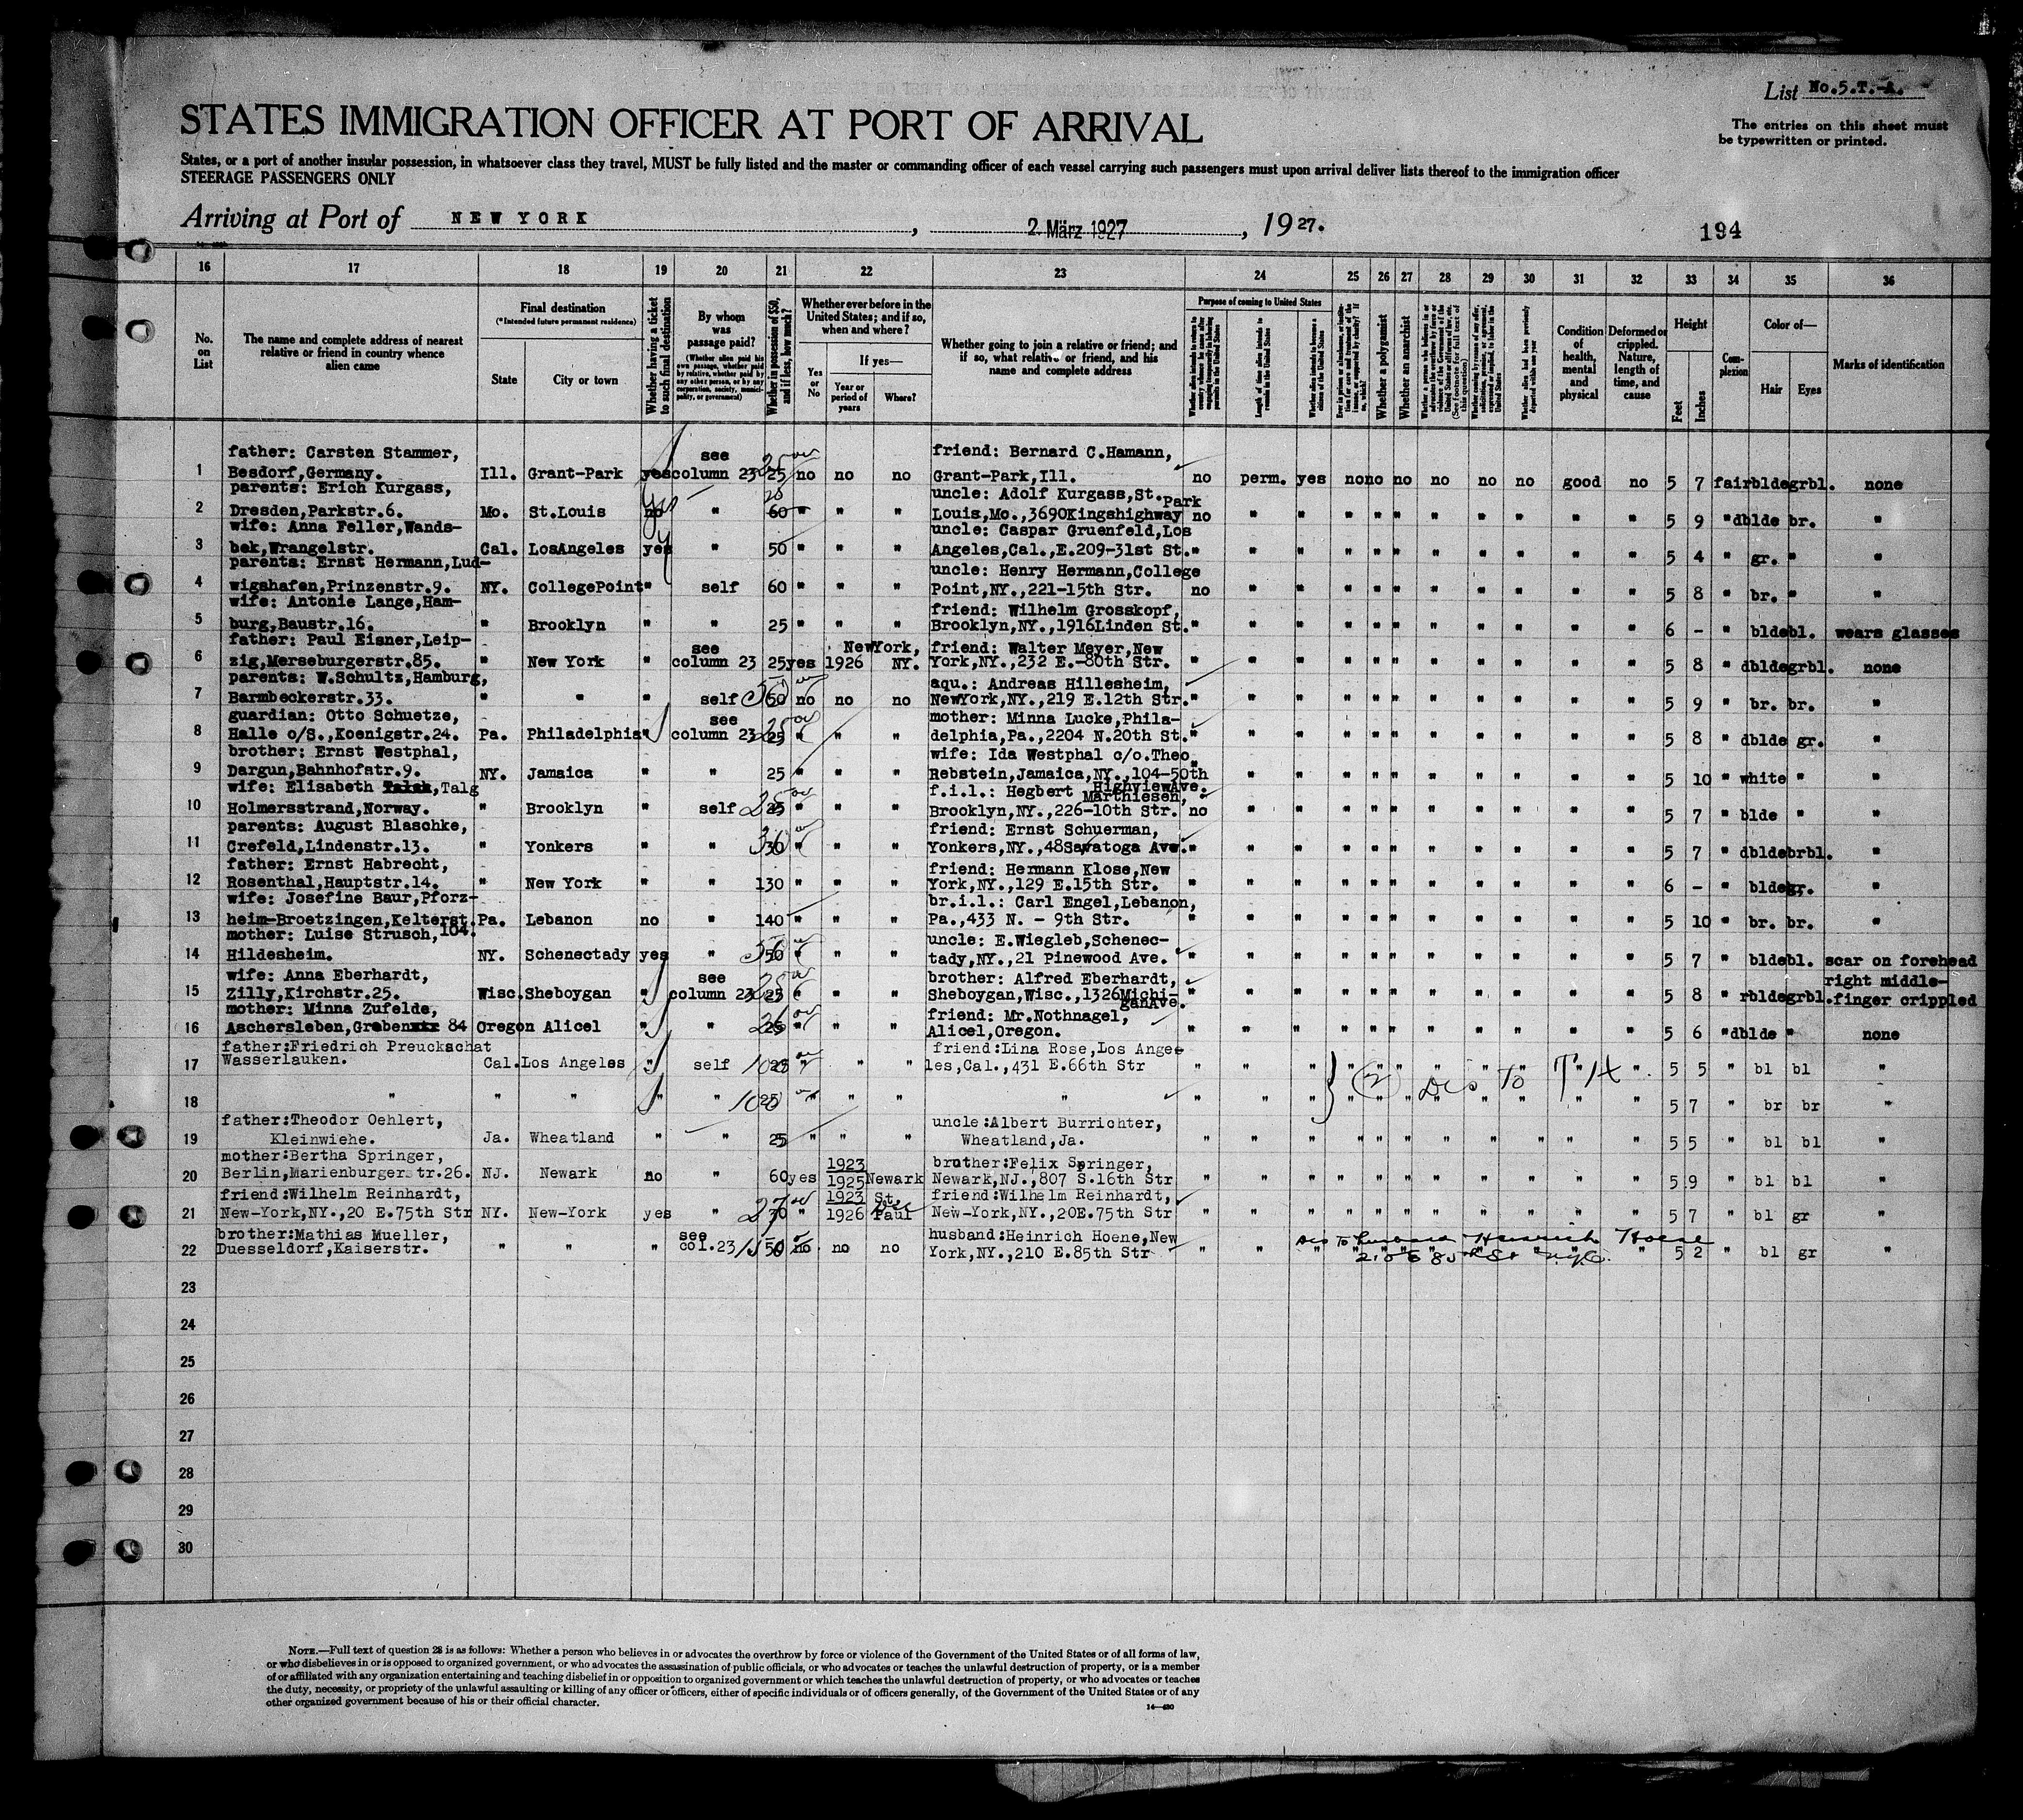 List No.5.T.-A.
STATES IMMIGRATION OFFICER AT PORT OF ARRIVAL
The entries on this sheet must
be typewritten or printed.
States, or a port of another insular possession, in whatsoever class they travel, MUST be fully listed and the master or commanding officer of each vessel carrying such passengers must upon arrival deliver lists thereof to the immigration officer
STEERAGE PASSENGERS ONLY
Arriving at Port of NEW YORK , 2. März 1927 , 19 27.
194
16 17 18 19 20 21 22 23 24 25 26 27 28 29 30 31 32 33 34 35 36
No. on List
The name and complete address of nearest relative or friend in country whence alien came
Final destination
(*Intended future permanent residence)
State City or town
Whether having a ticket to such final destination
By whom was passage paid?
(Whether alien paid his own passage, whether paid by relative, whether paid by any other person, or by any corporation, society, municipality, or government)
Whether in possession of $50, and if less, how much?
Whether ever before in the United States; and if so, when and where?
Yes or No
If yes—
Year or period of years
Where?
Whether going to join a relative or friend; and if so, what relative or friend, and his name and complete address
Purpose of coming to United States
Length of time alien intends to remain in the United States
Whether alien intends to become a citizen of the United States
Whether a polygamist
Whether an anarchist
Condition of health, mental and physical
Deformed or crippled. Nature, length of time, and cause
Height
Feet Inches
Complexion
Color of—
Hair Eyes
Marks of identification
father: Carsten Stammer, see friend: Bernard C.Hamann,
1 Besdorf,Germany. Ill. Grant-Park yes column 23 25 no no no Grant-Park,Ill. no perm. yes no no no no no no good no 5 7 fair blde grbl. none
parents: Erich Kurgass, uncle: Adolf Kurgass,St. Park
2 Dresden,Parkstr.6. Mo. St.Louis yes " 60 " " " Louis,Mo.,3690Kingshighway no " " " " " " " " " " 5 9 " dblde br. "
wife: Anna Feller,Wands- uncle: Caspar Gruenfeld,Los
3 bek,Wrangelstr. Cal. LosAngeles yes " 50 " " " Angeles,Cal.,E.209-31st St. " " " " " " " " " " " 5 4 " gr. " "
parents: Ernst Hermann,Lud- uncle: Henry Hermann,College
4 wigshafen,Prinzenstr.9. NY. CollegePoint " self 60 " " " Point,NY.,221-15th Str. no " " " " " " " " " " 5 8 " br. " "
wife: Antonie Lange,Ham- friend: Wilhelm Grosskopf,
5 burg,Baustr.16. " Brooklyn " " 25 " " " Brooklyn,NY.,1916Linden St. " " " " " " " " " " " 6 - " blde bl. wears glasses
father: Paul Eisner,Leip- see NewYork, friend: Walter Meyer,New
6 zig,Merseburgerstr.85. " New York " column 23 25 yes 1926 NY. York,NY.,232 E.-80th Str. " " " " " " " " " " " 5 8 " dblde grbl. none
parents: W.Schultz,Hamburg, aqu.: Andreas Hillesheim,
7 Barmbeckerstr.33. " " " self 50 no no no NewYork,NY.,219 E.12th Str. " " " " " " " " " " " 5 9 " br. br. "
guardian: Otto Schuetze, see mother: Minna Lucke,Phila-
8 Halle o/S.,Koenigstr.24. Pa. Philadelphia " column 23 25 " " " delphia,Pa.,2204 N.20th St. " " " " " " " " " " " 5 8 " dblde gr. "
brother: Ernst Westphal, wife: Ida Westphal c/o.Theo
9 Dargun,Bahnhofstr.9. NY. Jamaica " " 25 " " " Rebstein,Jamaica,NY.,104-50th " " " " " " " " " " 5 10 " white " "
HighviewAve.
wife: Elisabeth Talg f.i.l.: Hegbert Marthiesen,
10 Holmersstrand,Norway. " Brooklyn " self 25 " " " Brooklyn,NY.,226-10th Str. no " " " " " " " " " " 5 7 " blde " "
parents: August Blaschke, friend: Ernst Schuerman,
11 Crefeld,Lindenstr.13. " Yonkers " " 30 " " " Yonkers,NY.,48Saratoga Ave. " " " " " " " " " " " 5 7 " dblde brbl. "
father: Ernst Habrecht, friend: Hermann Klose,New
12 Rosenthal,Hauptstr.14. " New York " " 130 " " " York,NY.,129 E.15th Str. " " " " " " " " " " " 6 - " blde gr. "
wife: Josefine Baur,Pforz- br.i.l.: Carl Engel,Lebanon,
13 heim-Broetzingen,Kelterst. 104. Pa. Lebanon no " 140 " " " Pa.,433 N. - 9th Str. " " " " " " " " " " " 5 10 " br. br. "
mother: Luise Strusch, uncle: E.Wiegleb,Schenec-
14 Hildesheim. NY. Schenectady yes " 50 " " " tady,NY.,21 Pinewood Ave. " " " " " " " " " " " 5 7 " blde bl. scar on forehead
wife: Anna Eberhardt, see brother: Alfred Eberhardt, right middle-
15 Zilly,Kirchstr.25. Wisc. Sheboygan " column 23 25 " " " Sheboygan,Wisc.,1326Michi-ganAve. " " " " " " " " " " " 5 8 " rblde grbl. finger crippled
mother: Minna Zufelde, friend: Mr.Nothnagel,
16 Aschersleben,Graben 84 Oregon Alicel " " 25 " " " Alicel,Oregon. " " " " " " " " " " " 5 6 " dblde " none
father:Friedrich Preuckschat friend:Lina Rose,Los Ange-
17 Wasserlauken. Cal. Los Angeles " self 100 " " " les,Cal.,431 E.66th Str " " " " " " " " " " " 5 5 " bl bl "
(2) Dis To T A
18 " " " " " 100 " " " " " " " " " " " " " " " " 5 7 " br br "
father:Theodor Oehlert, uncle:Albert Burrichter,
19 Kleinwiehe. Ja. Wheatland " " 25 " " " Wheatland,Ja. " " " " " " " " " " " 5 5 " bl bl "
mother:Bertha Springer, 1923 brother:Felix Springer,
20 Berlin,Marienburgerstr.26. NJ. Newark no " 60 yes 1925 Newark Newark,NJ.,807 S.16th Str " " " " " " " " " " " 5 9 " bl bl "
friend:Wilhelm Reinhardt, 1923 St. friend:Wilhelm Reinhardt,
21 New-York,NY.,20 E.75th Str NY. New-York yes " 27 " 1926 Paul New-York,NY.,20E.75th Str " " " " " " " " " " " 5 7 " bl gr "
brother:Mathias Mueller, see husband:Heinrich Hoene,New Dis To husband Heinrich Hoene
22 Duesseldorf,Kaiserstr. " " " col.23 50 no no no York,NY.,210 E.85th Str " " " " " " " " " " " 5 2 " bl gr "
210 E 85 St NYC.
23
24
25
26
27
28
29
30
NOTE.—Full text of question 28 is as follows: Whether a person who believes in or advocates the overthrow by force or violence of the Government of the United States or of all forms of law,
or who disbelieves in or is opposed to organized government, or who advocates the assassination of public officials, or who advocates or teaches the unlawful destruction of property, or is a member
of or affiliated with any organization entertaining and teaching disbelief in or opposition to organized government or which teaches the unlawful destruction of property, or who advocates or teaches
the duty, necessity, or propriety of the unlawful assaulting or killing of any officer or officers, either of specific individuals or of officers generally, of the Government of the United States or of any
other organized government because of his or their official character.